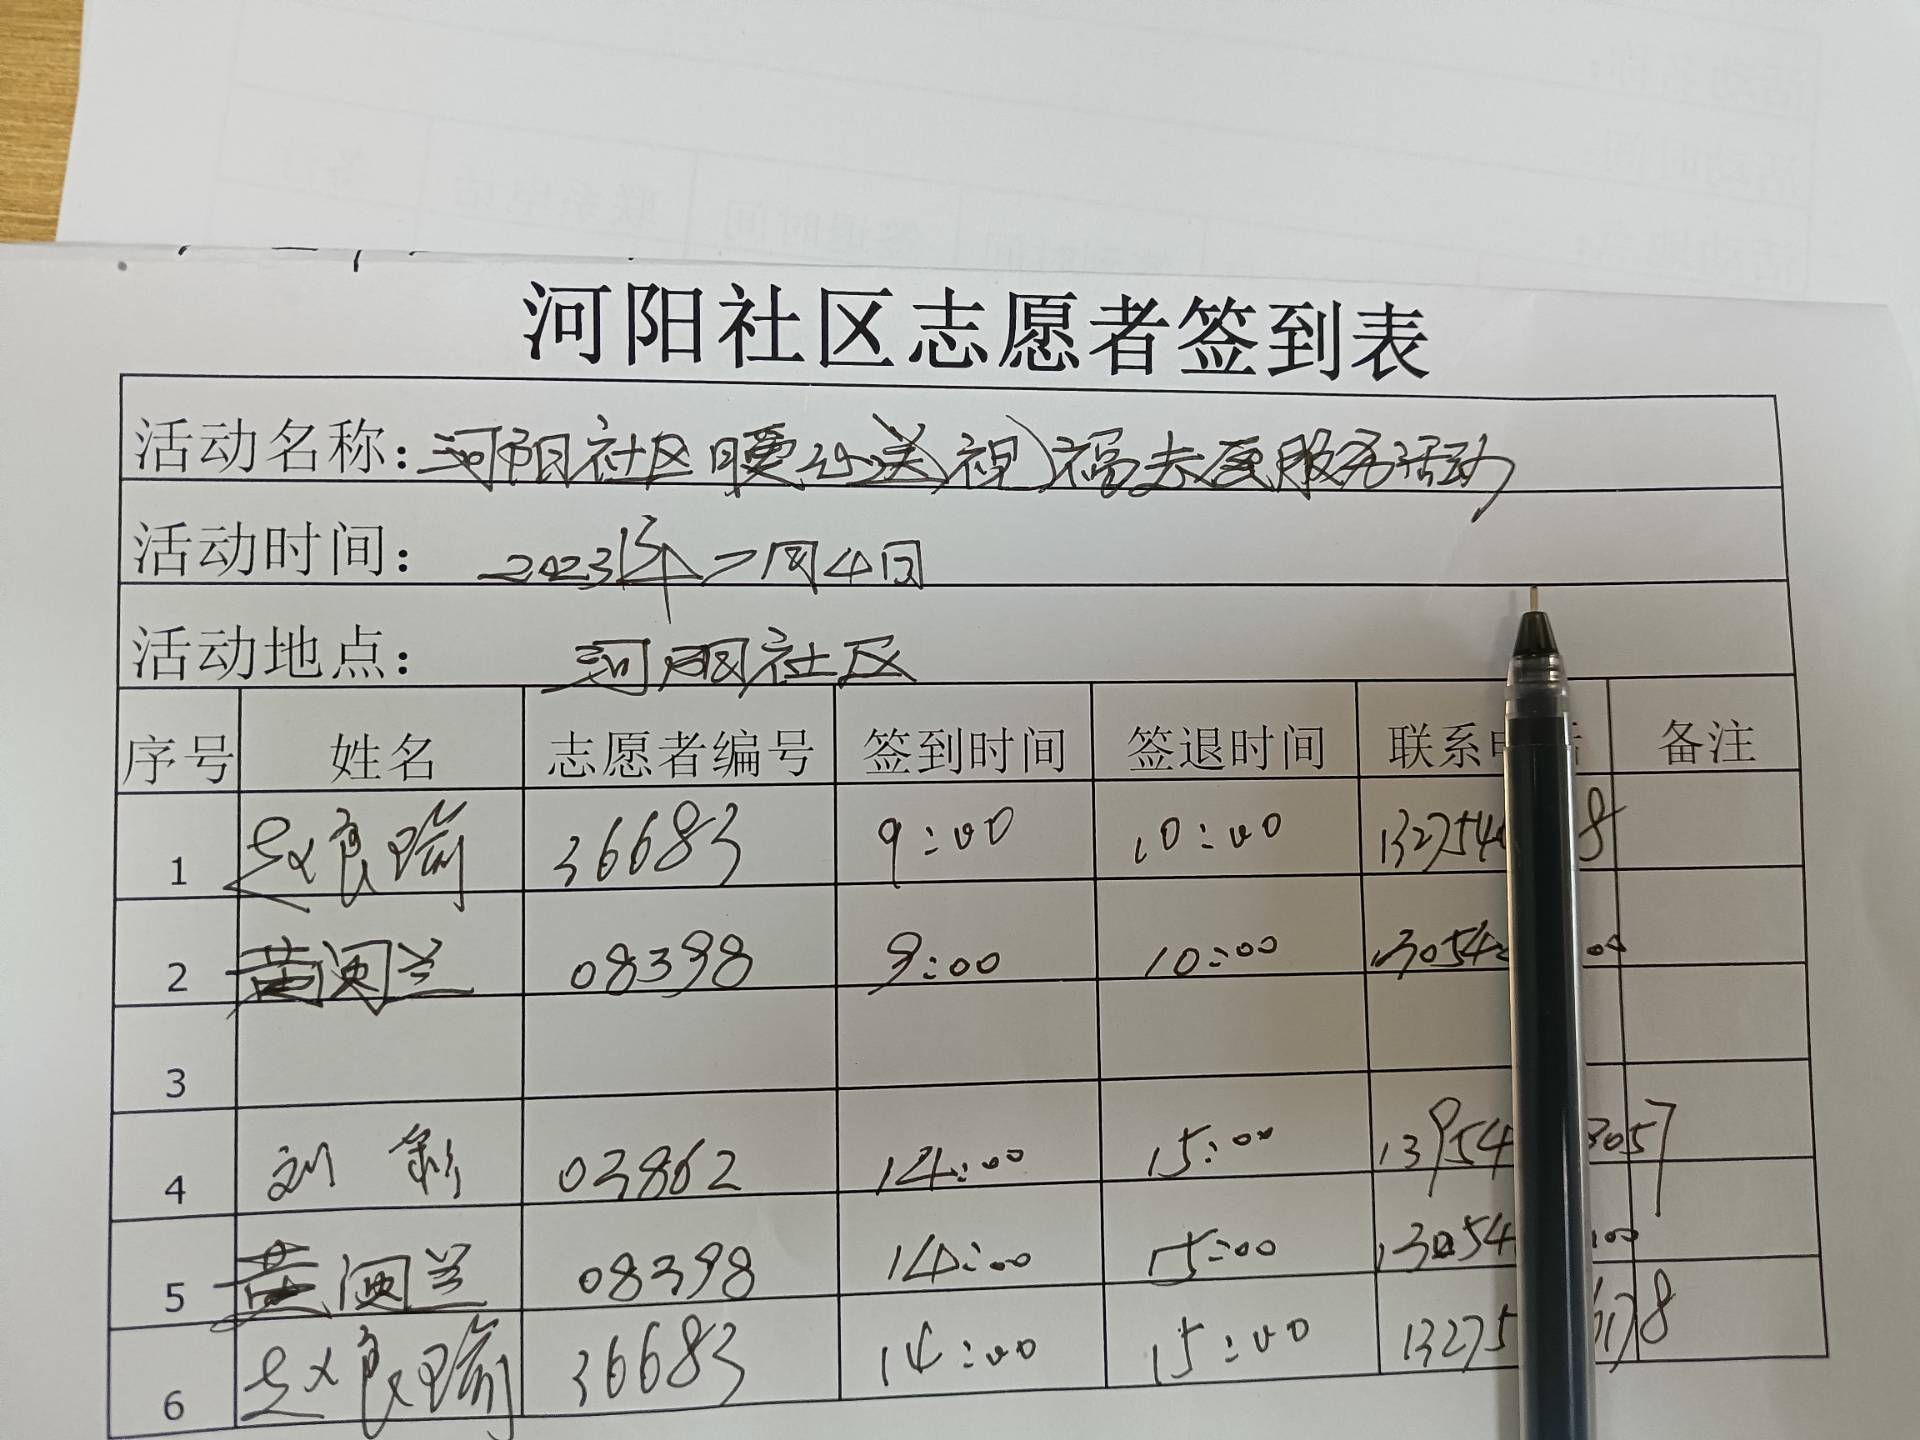 河阳社区志愿者签到表
活动名称：河阳社区暖心送祝福志愿服务活动
活动时间： 2023年二月4日
活动地点： 河阳社区
序号 姓名 志愿者编号 签到时间 签退时间 联系 备注
1 赵良瑜 36683 9:00 10:00 132754 8
2 08398 9:00 10:00 13054 00
3
4 刘彩 03862 14:00 15:00 13954 3057
5 08398 14:00 15:00 13054 100
6 赵良瑜 36683 14:00 15:00 13275 8